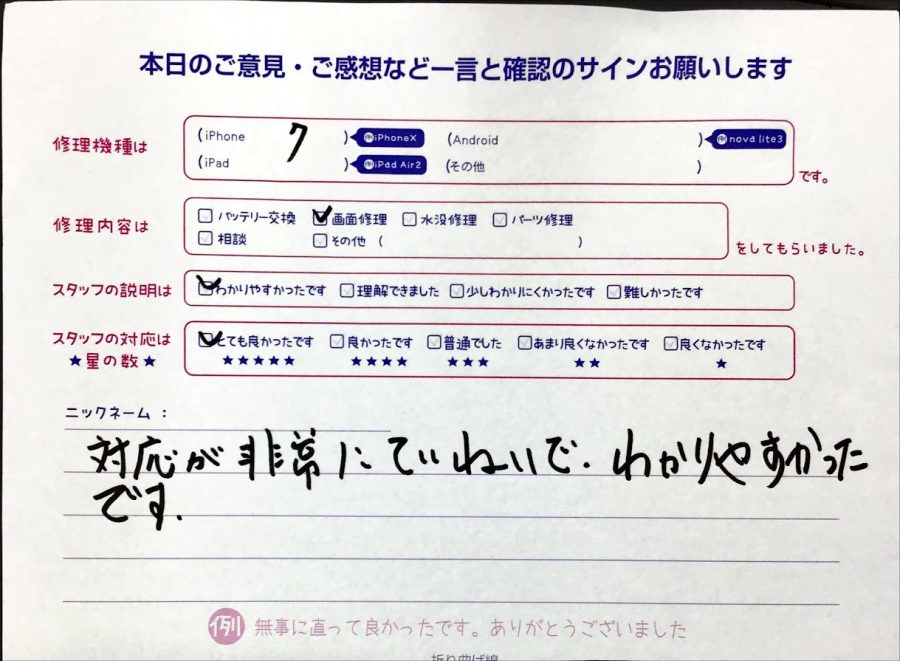 本日のご意見・ご感想など一言と確認のサインお願いします
修理機種は
(iPhone 7 ) iPhoneX (Android ) nova lite3
(iPad ) iPad Air2 (その他 )
です。
修理内容は
バッテリー交換 画面修理 水没修理 パーツ修理
相談 その他 ( )
をしてもらいました。
スタッフの説明は わかりやすかったです 理解できました 少しわかりにくかったです 難しかったです
スタッフの対応は とても良かったです 良かったです 普通でした あまり良くなかったです 良くなかったです
★星の数★ ★★★★★ ★★★★ ★★★ ★★ ★
ニックネーム：
対応が非常にていねいで、わかりやすかった
です.
例 無事に直って良かったです。ありがとうございました
折り曲げ線